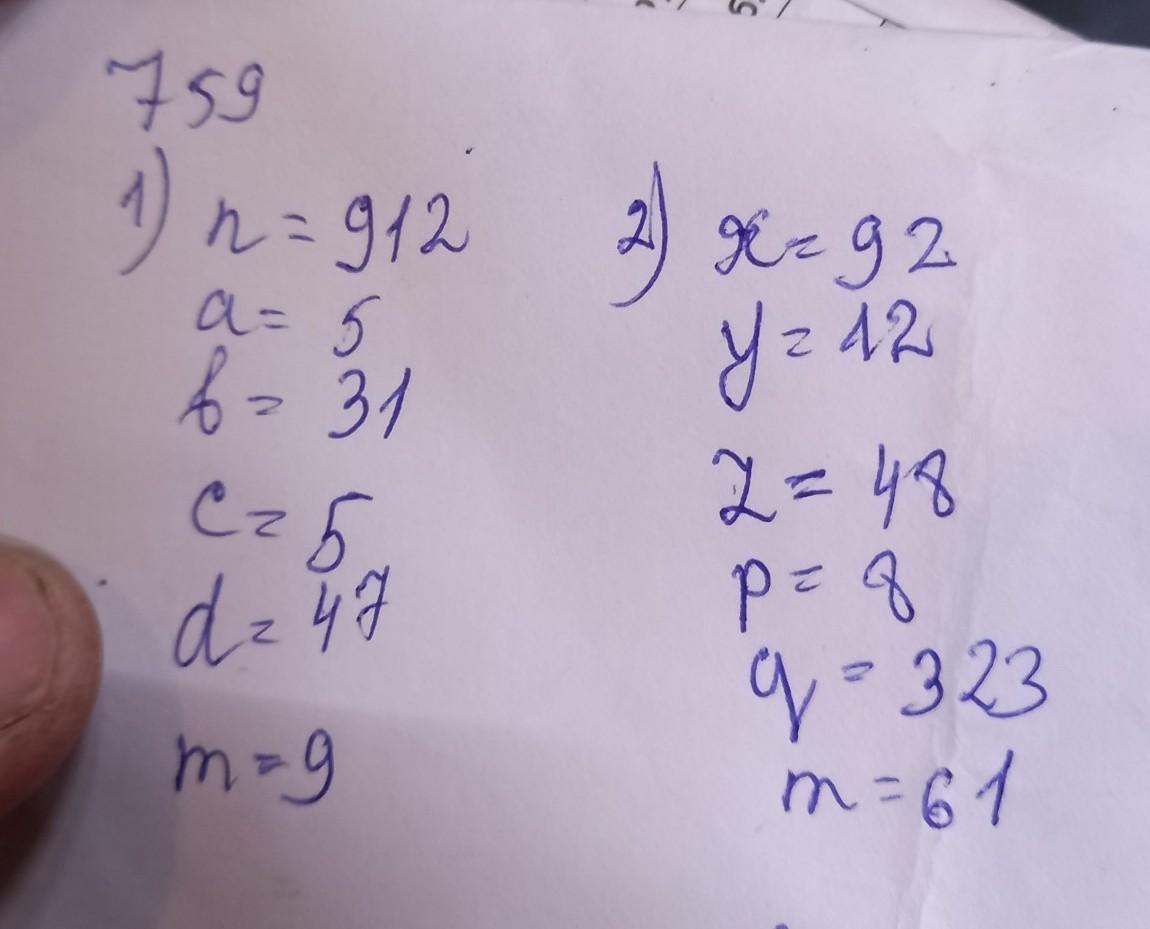 759
1) n = 912
a = 5
b = 31
c = 5
d = 47
m = 9
2) x = 92
y = 12
z = 48
p = 8
q = 323
m = 61